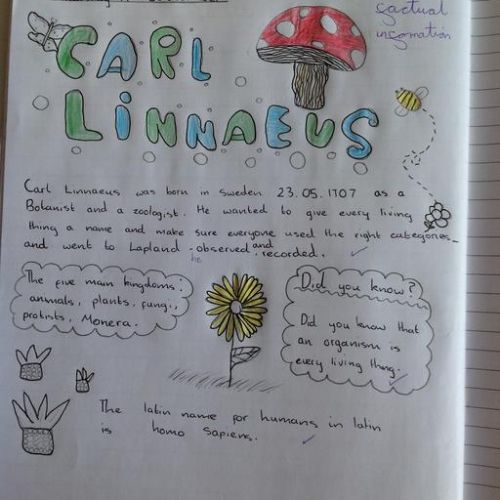 factual
information
CARL
LINNAEUS
Carl Linnaeus was born in Sweden 23.05.1707 as a
Botanist and a zoologist. He wanted to give every living
thing a name and make sure everyone used the right categories
and went to Lapland he observed and recorded.
The five main kingdoms:
animals, plants, fungi,
protists, Monera.
Did you know?
Did you know that
an organism is
every living thing.
The latin name for humans in latin
is homo sapiens.